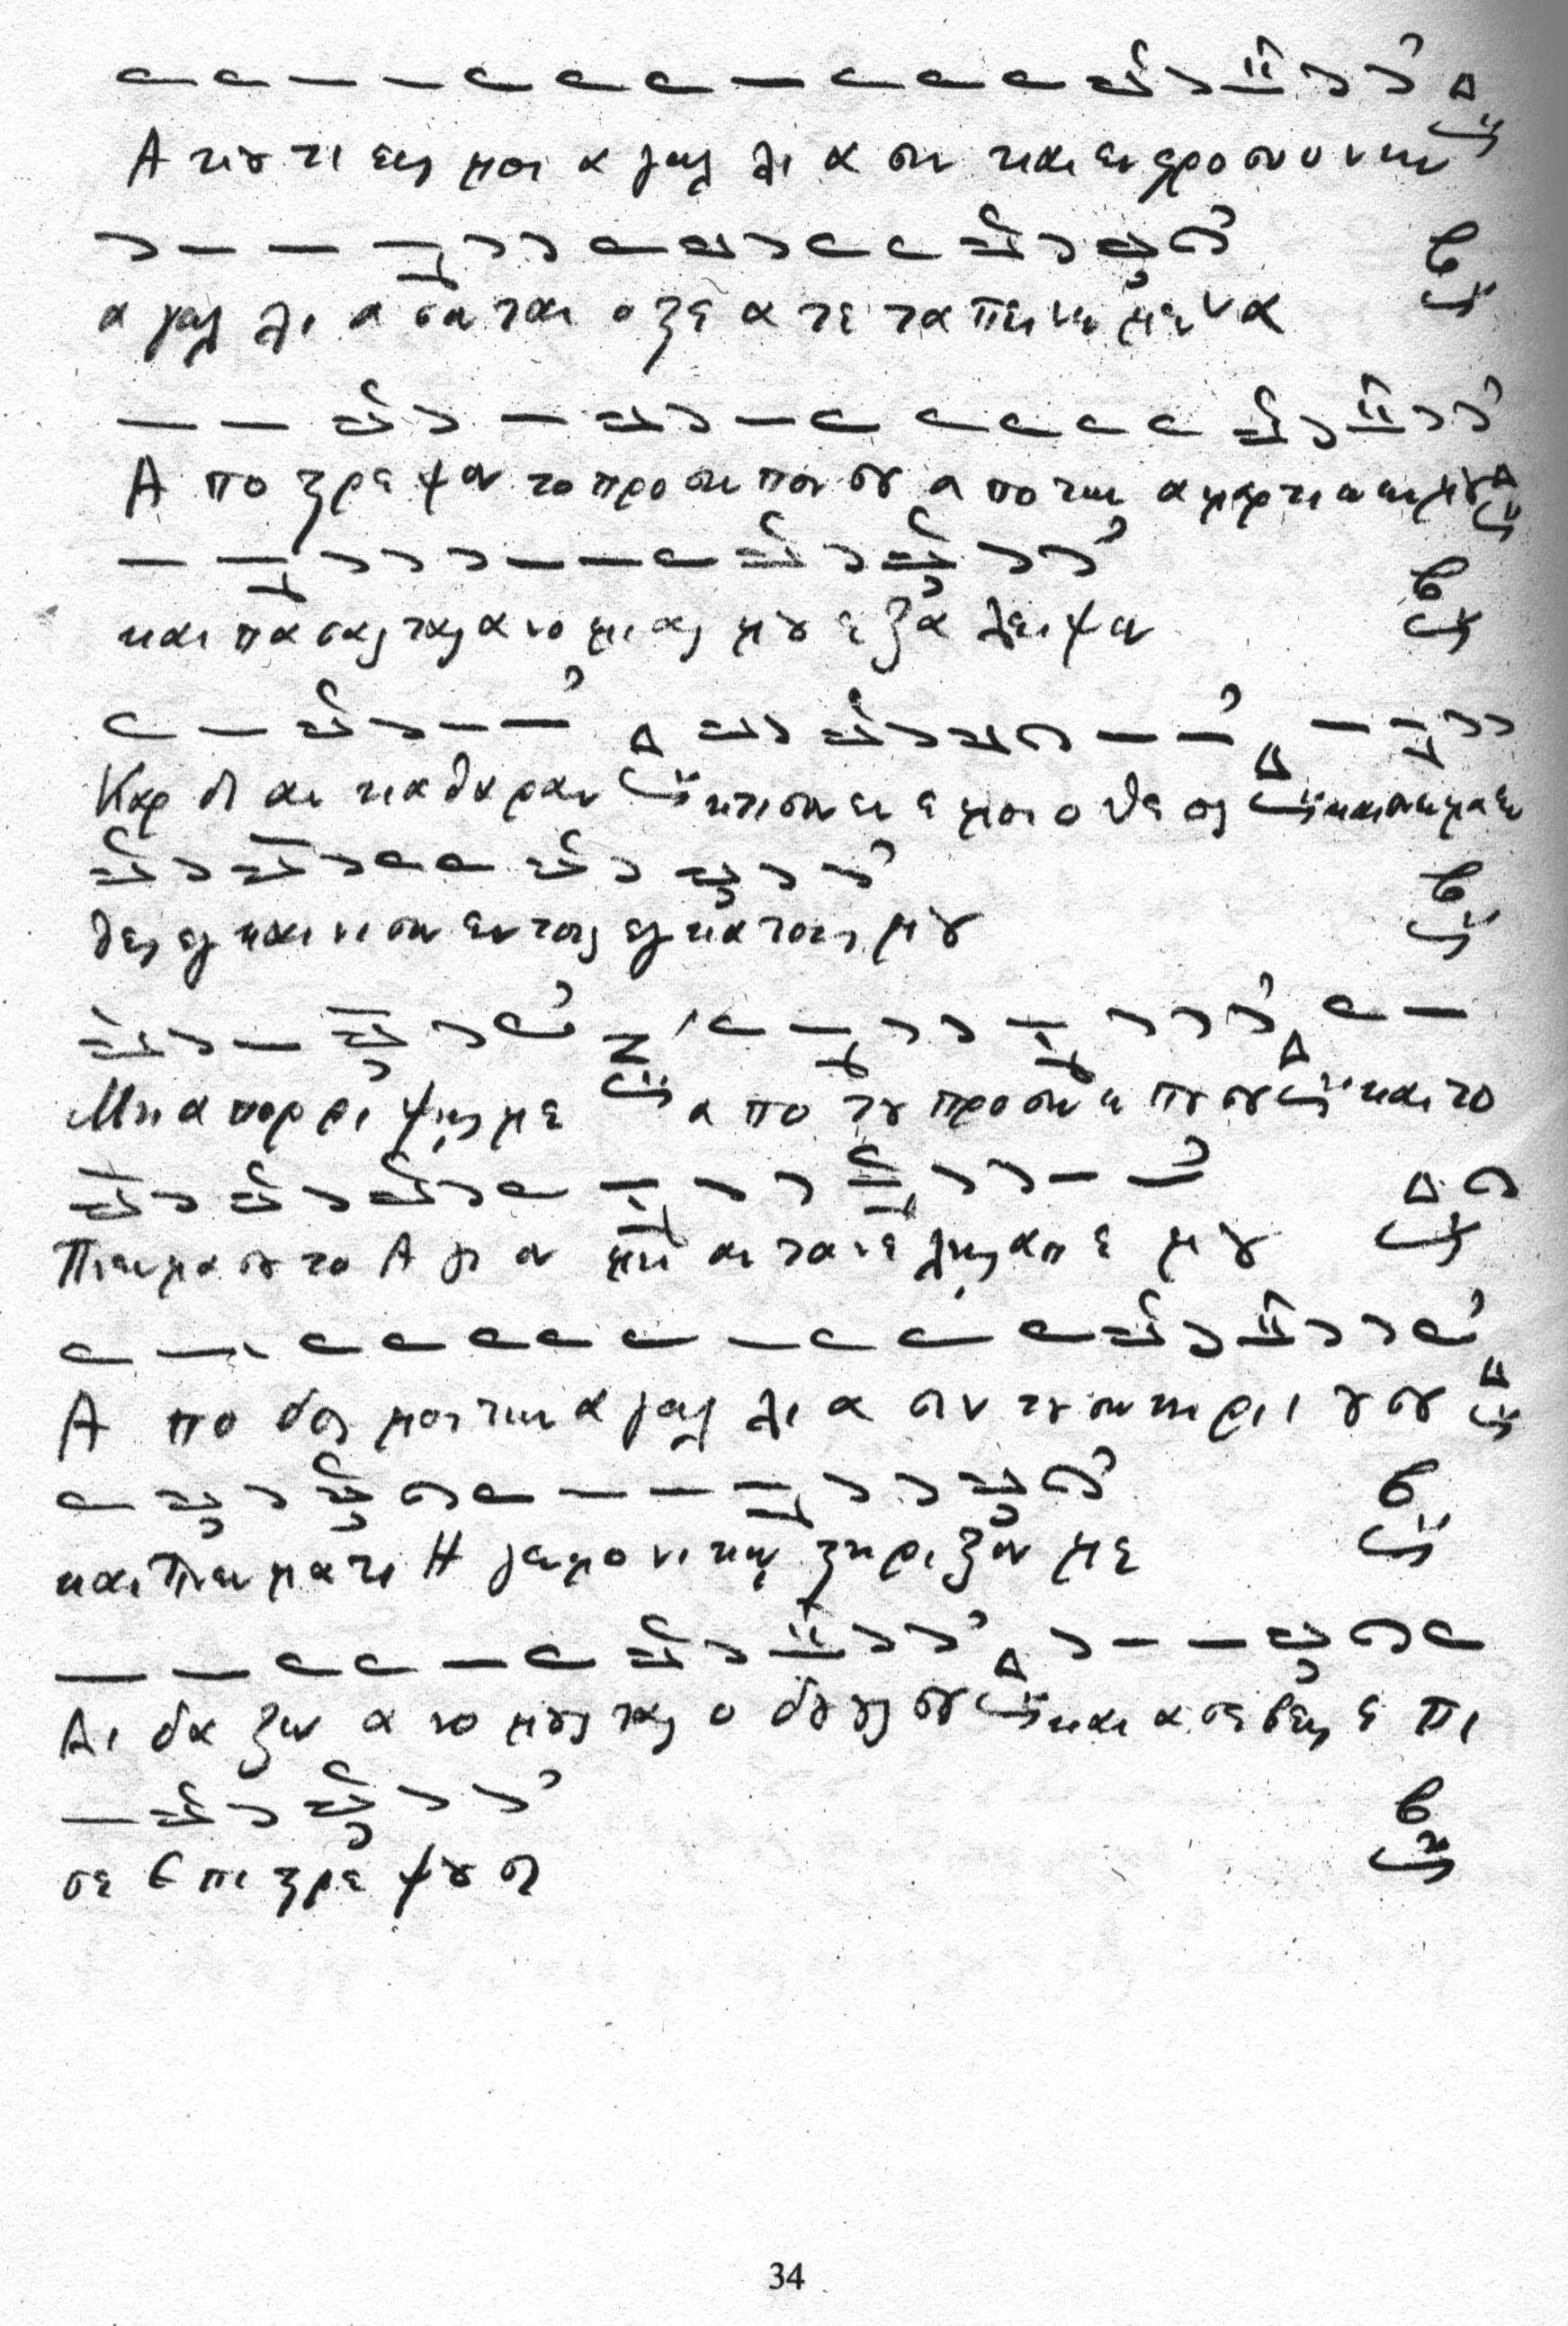 Α κȣ τι εις μοι α γαλ λι α σιν και ευφρο συ υ νην
α γαλ λι α σον ται ο στε α τε τα πει νω με ε να
Α πο στρε ψον το προ σω πον σȣ α πο των α μαρ τι ω ων μȣ
και πα σας τας α νο μι ας μȣ ε ξα λει ψον
Καρ δι αν κα θα ραν κτι σον εν ε μοι ο Θε ος και πνευμα ευ
θες εγ και νι σον εν τοις εγ κα τοις μȣ
Μη α πορ ρι ψῃς με α πο τȣ προ σω ω πȣ σȣ και το
Πνευ μα σȣ το Α γι ον μη αν τα νε λῃς απ ε μȣ
Α πο δος μοι την α γαλ λι α σιν τȣ σω τη ρι ι ȣ σȣ
και Πνευ μα τι Η γε μο νι κῳ στη ρι ξον με
Δι δα ξω α νο μȣς τας ο δȣ ȣς σȣ και α σε βεις ε πι
σε ε πι στρε ψȣ σι
34